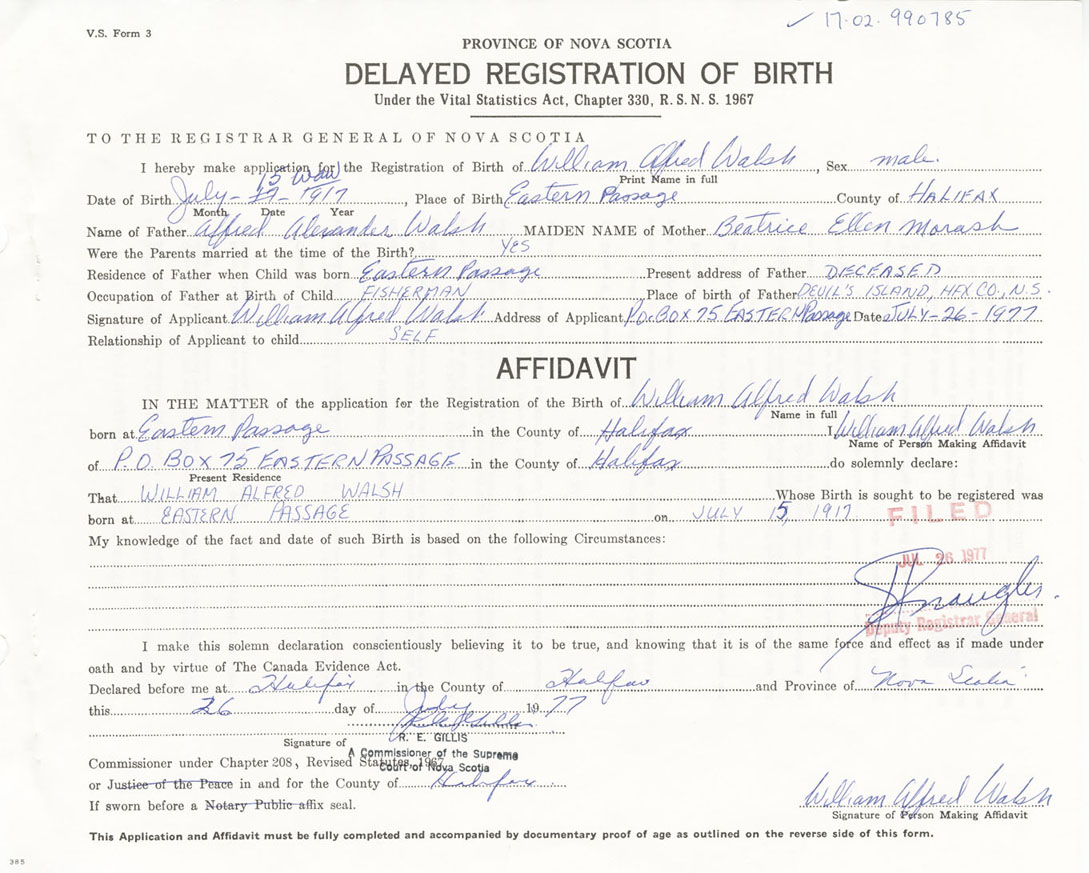 ✓ 17-02-990785
V.S. Form 3
PROVINCE OF NOVA SCOTIA
DELAYED REGISTRATION OF BIRTH
Under the Vital Statistics Act, Chapter 330, R. S. N. S. 1967
TO THE REGISTRAR GENERAL OF NOVA SCOTIA
I hereby make application for the Registration of Birth of William Alfred Walsh, Sex male.
Print Name in full
15 WAW
Date of Birth July - 19 - 1917, Place of Birth Eastern Passage County of HALIFAX
Month Date Year
Name of Father Alfred Alexander Walsh MAIDEN NAME of Mother Beatrice Ellen Morash
Were the Parents married at the time of the Birth? YES
Residence of Father when Child was born Eastern Passage Present address of Father DECEASED
Occupation of Father at Birth of Child FISHERMAN Place of birth of Father DEVIL'S ISLAND, HFX CO., N.S.
Signature of Applicant William Alfred Walsh Address of Applicant P.O. BOX 75 EASTERN Passage Date JULY-26-1977
Relationship of Applicant to child SELF
AFFIDAVIT
IN THE MATTER of the application for the Registration of the Birth of William Alfred Walsh
Name in full
born at Eastern Passage in the County of Halifax I William Alfred Walsh
Name of Person Making Affidavit
of P.O. BOX 75 EASTERN PASSAGE in the County of Halifax do solemnly declare:
Present Residence
That WILLIAM ALFRED WALSH Whose Birth is sought to be registered was
born at EASTERN PASSAGE on JULY 15, 1917
FILED
My knowledge of the fact and date of such Birth is based on the following Circumstances:
JUL 26 1977
Deputy Registrar General
I make this solemn declaration conscientiously believing it to be true, and knowing that it is of the same force and effect as if made under
oath and by virtue of The Canada Evidence Act.
Declared before me at Halifax in the County of Halifax and Province of Nova Scotia
this 26 day of July 1977
R. E. GILLIS
Signature of
A Commissioner of the Supreme
Court of Nova Scotia
Commissioner under Chapter 208, Revised Statutes, 1967
or Justice of the Peace in and for the County of Halifax
If sworn before a Notary Public affix seal.
William Alfred Walsh
Signature of Person Making Affidavit
This Application and Affidavit must be fully completed and accompanied by documentary proof of age as outlined on the reverse side of this form.
385